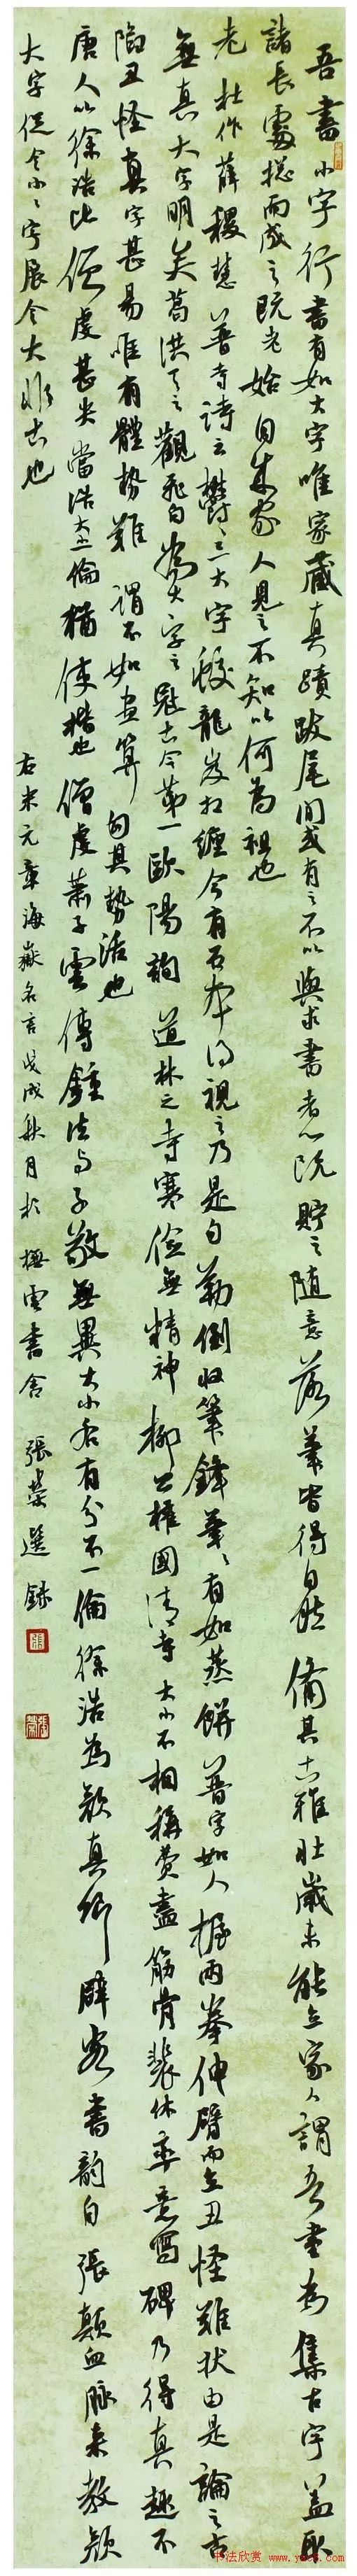 吾書小字行書有如大字唯家藏真蹟跋尾間或有之不以與求書者心既貯之隨意落筆皆得自然備其古雅壯歲未能立家人謂吾書為集古字蓋取
諸長處總而成之既老始自成家人見之不知以何為祖也
老杜作薛稷慧普寺詩云鬱鬱三大字蛟龍岌相纏今有石本得視之乃是勾勒倒收筆鋒筆筆有如蒸餅普字如人握兩拳伸臂而立丑怪難狀由是論之古
無真大字明矣葛洪天台之觀飛白為大字之冠古今第一歐陽詢道林之寺寒儉無精神柳公權國清寺大小不相稱費盡筋骨裴休率意寫碑乃得真趣不
陷丑怪真字甚易唯有體勢難謂不如畫算勻其勢活也
唐人以徐浩比僧虔甚失當浩大小一倫猶吏楷也僧虔蕭子雲傳鍾法與子敬無異大小各有分不一倫徐浩為顏真卿辟客書韻自張顛血脈來教顏
大字促令小小字展令大非古也
右米元章海嶽名言戊戌秋月於 雲書舍 張榮選錄
書法欣賞 www.yac8.com